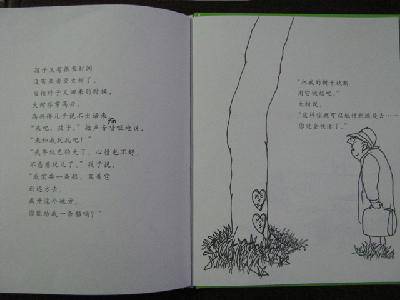 "孩子又有很长时间
没有再来看望大树了。
当他终于又回来的时候,
大树非常高兴,
高兴得几乎说不出话来
"来吧,孩子,"她声音地说,
"来和我玩玩吧!"
"我年纪已经大了,心情也不好,
不愿意玩儿了。"孩子说,
"我需要一条船,驾着它
到远方去,
离开这个地方,
你能给我一条船吗?"
"把我的树干砍断,
用它做船吧。"
大树说,
"这样你就可以航行到远处去……
你就会快活了。"